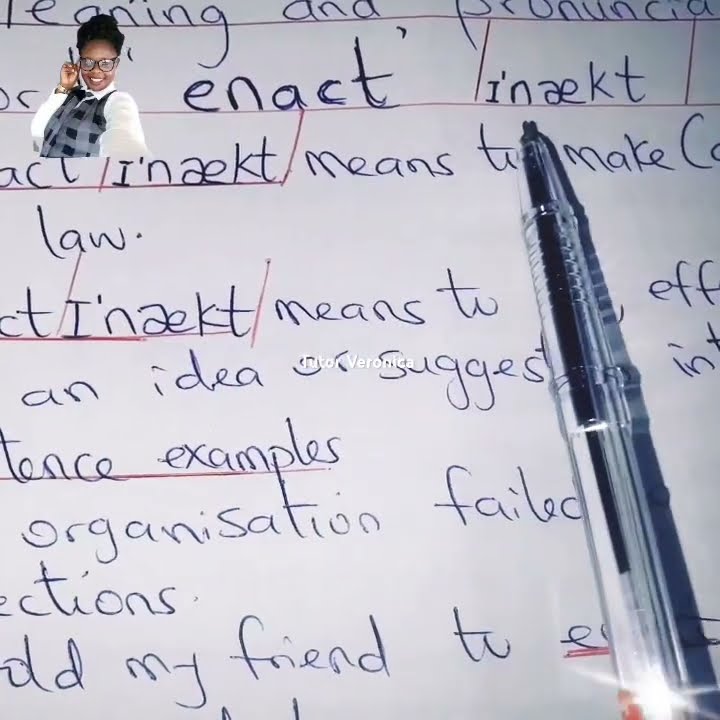 eaning and pronuncia
enact' /ɪ'nækt /
act /ɪ'nækt/ means to make (
law.
ct /ɪ'nækt/ means to , eff
an idea or sugges int
Tutor Veronica
tence examples
organisation failed
ections.
old my friend to